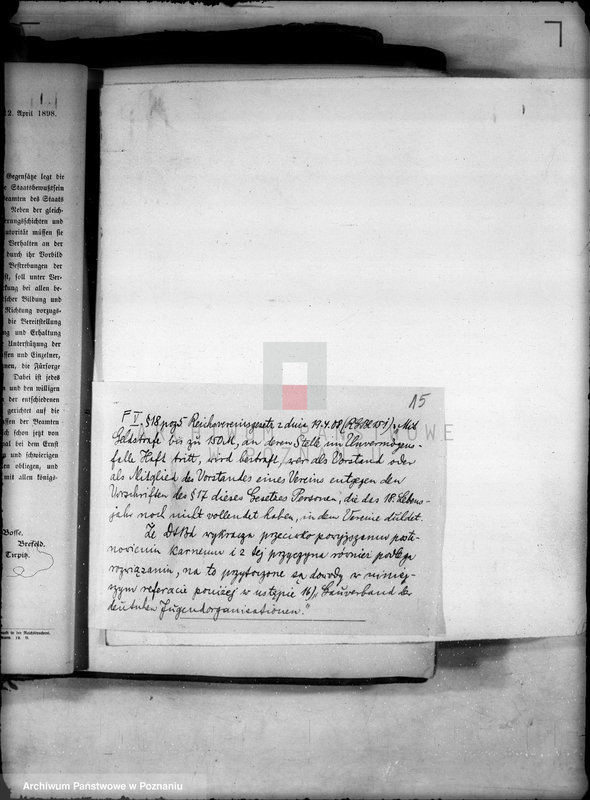 12. April 1898.
Gegensätze legt die
e Staatsbewußtsein
beamten des Staats
Neben der gleich-
erungsschichten und
utorität müssen sie
Verhalten an der
durch ihr Vorbild
Bestrebungen der
st, soll unter Ver-
kung bei allen be-
scher Bildung und
Richtung vorzugs-
die Bereitstellung
ng und Erhaltung
Unterstützung der
ssen und Einzelner,
nen, die Fürsorge
: Dabei ist jedes
und den willigen
der entschiedenen
gerichtet auf die
ssen der Beamten
ch schon jetzt von
al bei dem Ernst
und schwierigen
en obliegen, und
mit allen königs-
Bosse.
Brefeld.
Tirpitz.
15
F V. § 18 poz 5 Reichsvereinsgesetz z dnia 19.4.08 (RGBl 151) „Mit
Geldstrafe bis zu 150 M, an deren Stelle im Unvermögens-
falle Haft tritt, wird bestraft, wer als Vorstand oder
als Mitglied des Vorstandes eines Vereins entgegen den
Vorschriften des § 17 dieses Gesetzes Personen, die das 18. Lebens-
jahr noch nicht vollendet haben, in dem Vereine duldet.
Że DtBd wykracza przeciwko powyższemu posta-
nowieniu karnemu i z tej przyczyna również podlega
rozwiązaniu, na to przytoczone są dowody w niniej-
szym referacie poniżej w ustępie 16/, Gauverband der
deutschen Jugendorganisationen."
Archiwum Państwowe w Poznaniu